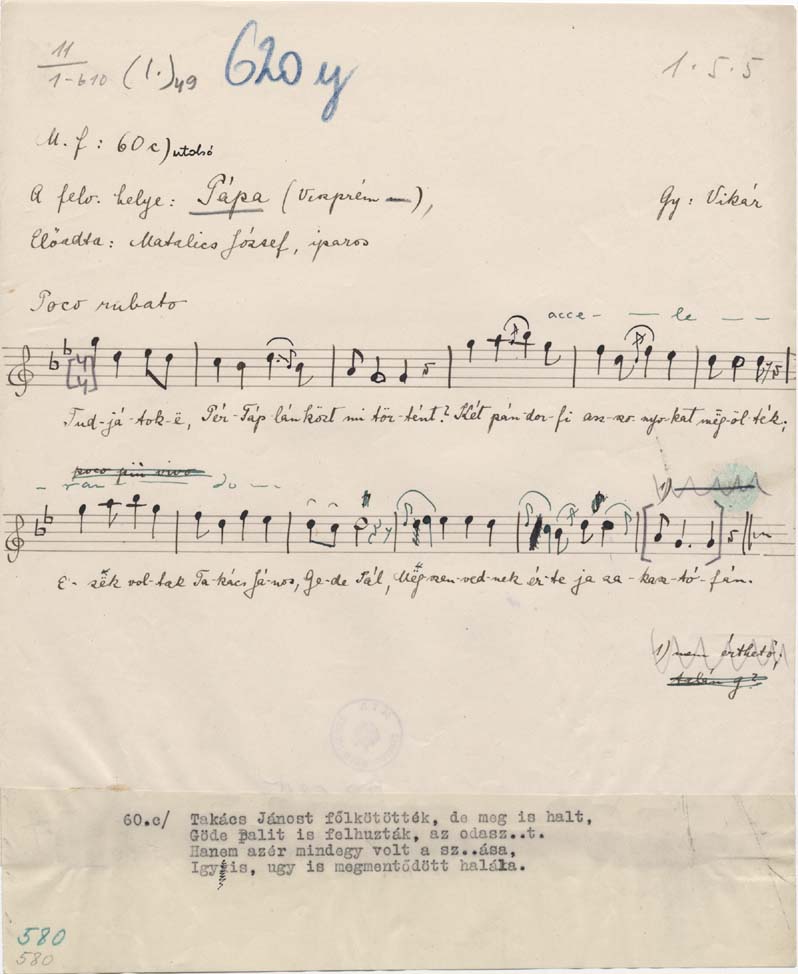 11
1-610 (1.)49 620y 1·5·5
M. f: 60c) utolsó
A felv. helye: Pápa (Veszprém —), Gy: Vikár
Előadta: Matalics József, iparos
Poco rubato
acce - — le — —
Tud-já-tok-ë, Pér-Táp-lánközt mi tör-tént? Két pán-dor-fi asz-szo-nyo-kat mëg-öl-ték;
poco più vivo
- ran - do - -
1)
E-zëk vol-tak Ta-kács Já-nos, Ge-de Pál, Mëg-szen-ved-nek ér-te ja aa-kasz-tó-fán.
1) nem érthető;
talán g?
60.c/ Takács Jánost főlkötötték, de meg is halt,
Göde Palit is felhuzták, az odasz..t.
Hanem azér mindegy volt a sz..ása,
Igy is, ugy is megmentődött halála.
580
580